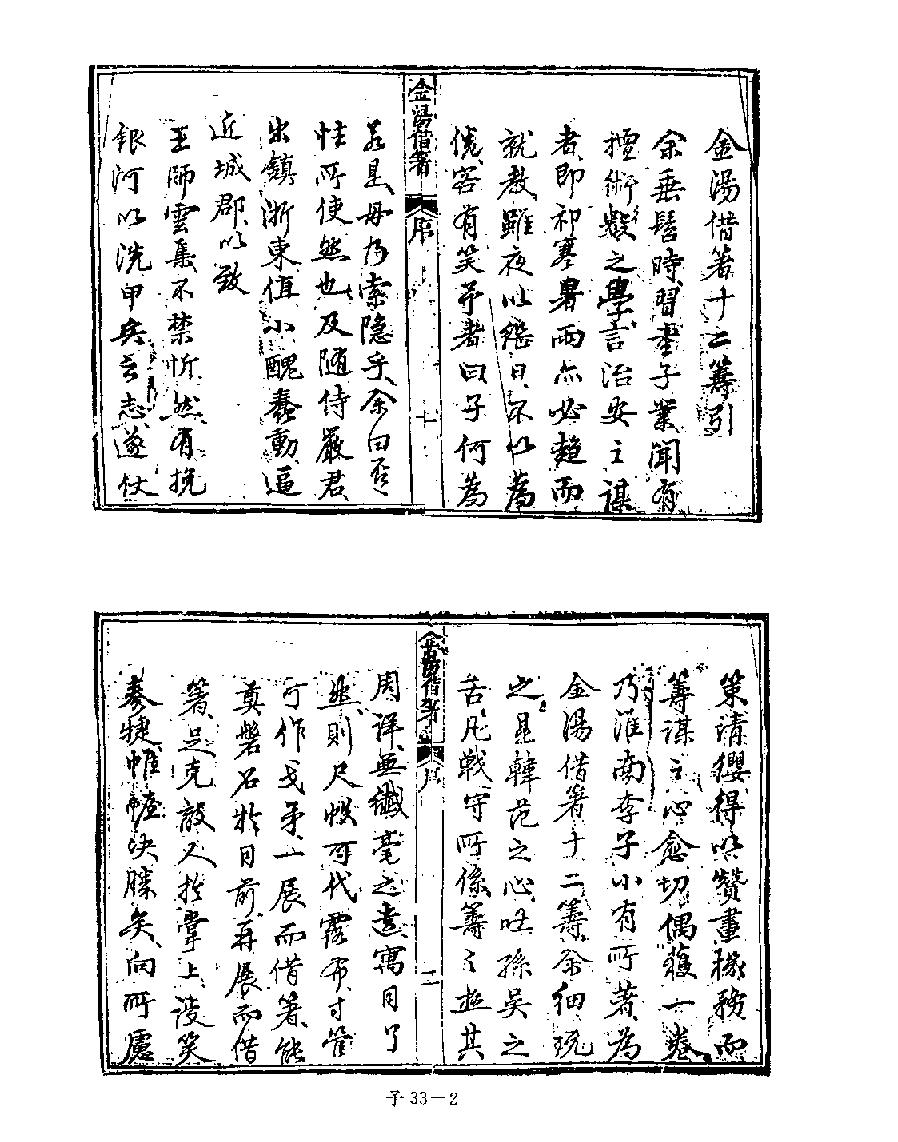 金湯借箸十二籌引
余垂髫時習童子業聞有
擅術數之學言治安之謀
者即祁寒暑雨亦必趨而
就教雖夜以繼日不以為
倦客有笑予者曰子何為
金湯借箸
序
一
若是毋乃索隱乎余曰否
性所使然也及隨侍嚴君
出鎮浙東值小醜蠢動逼
近城郡以致
王師雲集不禁忻然有挽
銀河以洗甲兵之志遂仗
策請纓得以贊畫機務而
籌謀之心愈切偶獲一卷
乃淮南李子小有所著為
金湯借箸十二籌余細玩
之見韓范之心吐孫吳之
舌凡戰守所係籌之極其
金湯借箸
序
二
周詳無纖毫之遺寓目了
然則尺帙可代露布寸管
可作戈矛一展而借箸能
奠磐石於目前再展而借
箸足克敵人於掌上談笑
奏捷帷幄決勝矣向所慮
子33－2